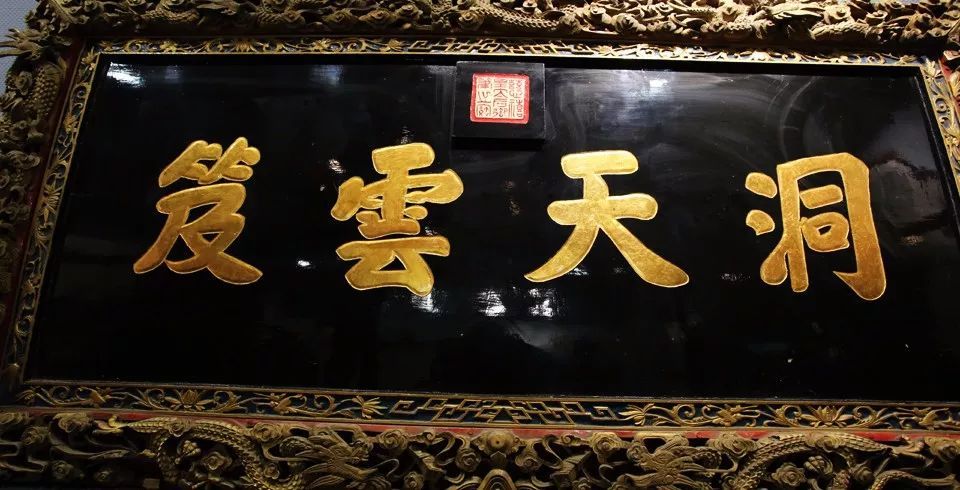 洞天雲笈